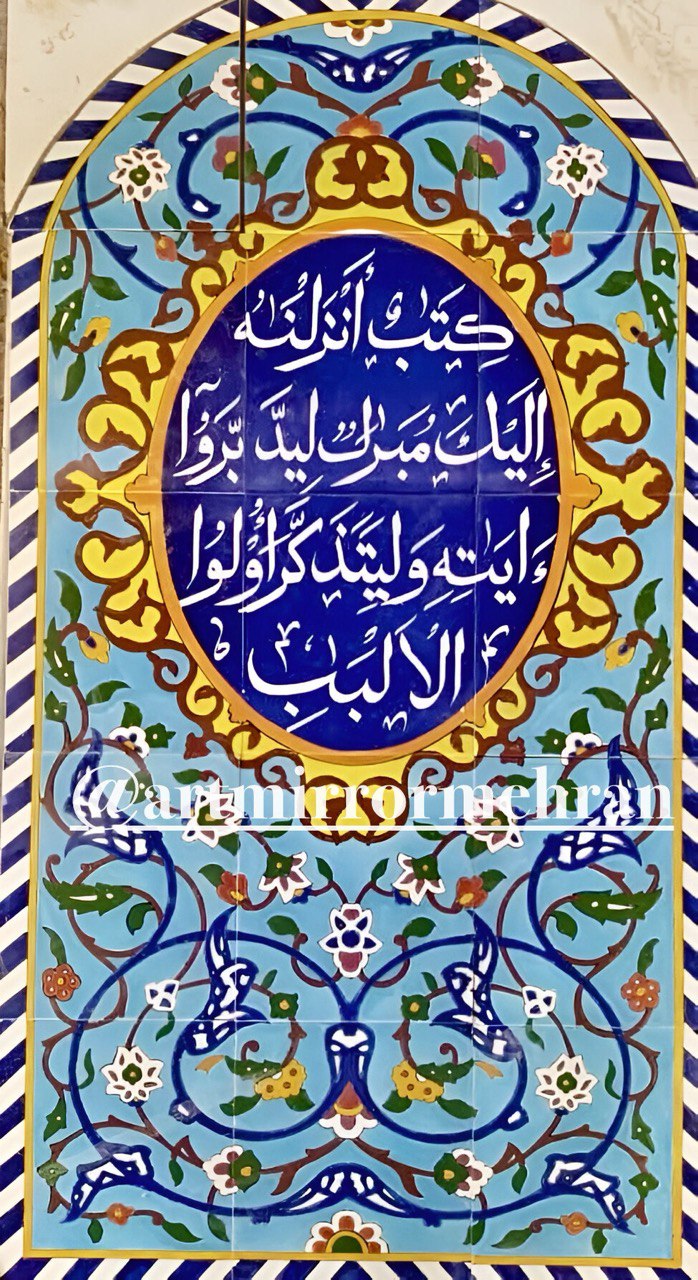 كِتَٰبٌ أَنْزَلْنَٰهُ
إِلَيْكَ مُبَٰرَكٌ لِيَدَّبَّرَوُٓا
ءَايَٰتِهِ وَلِيَتَذَكَّرَ أُوْلُوا
الْأَلْبَٰبِ
@artmirrormehran